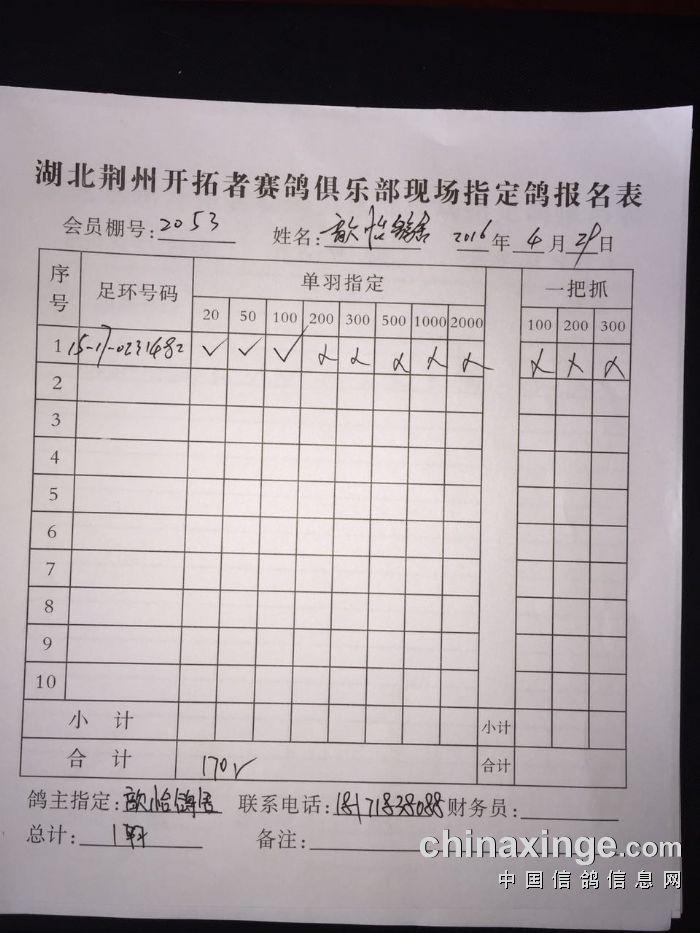 湖北荆州开拓者赛鸽俱乐部现场指定鸽报名表
会员棚号: 2053 姓名: 歆怡鸽舍 2016 年 4 月 29 日
序号 足环号码 单羽指定 一把抓
20 50 100 200 300 500 1000 2000 100 200 300
1 15-17-0231482 ✓ ✓ ✓ × × × × × × × ×
2
3
4
5
6
7
8
9
10
小计 小计
合计 170✓ 合计
鸽主指定: 歆怡鸽舍 联系电话: 18171838088 财务员:
总计: 1羽 备注:
chinaxinge.com
中国信鸽信息网